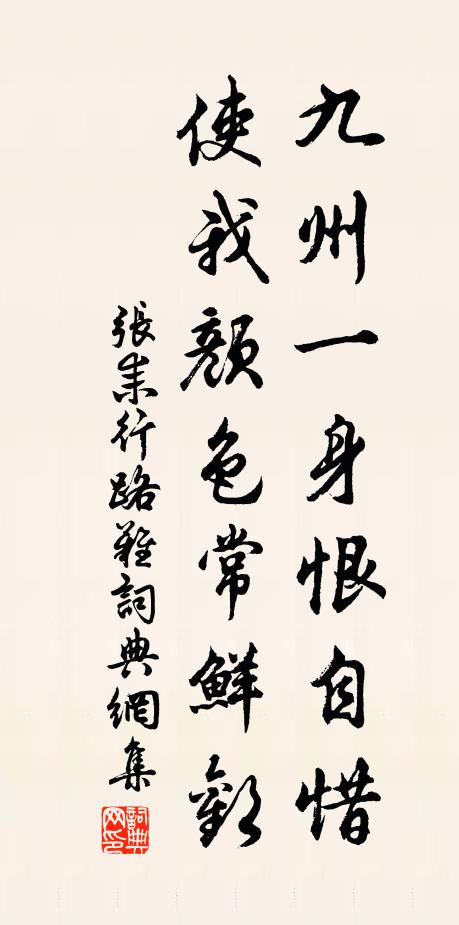 九州一身恨自惜
使我顏色常鮮歡
張耒行路難詞典網集
詞典
网印